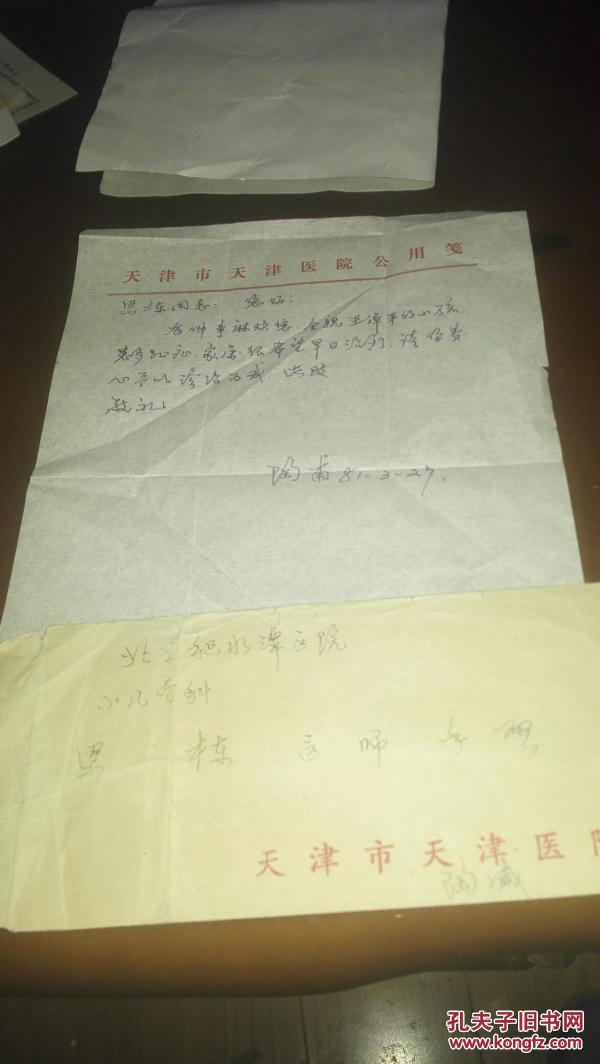 天津市天津医院公用笺
梁栋同志: 您好:
有件事麻烦您,令亲王泽平的小孩,
患多趾症.家属很希望早日治疗,请您费
心予以诊治为感 此致
敬礼
陶甫 81-3-27.
北京积水潭医院
小儿骨科
梁 栋 医师 手启
天津市天津医院
陶缄
孔夫子旧书网
www.kongfz.com